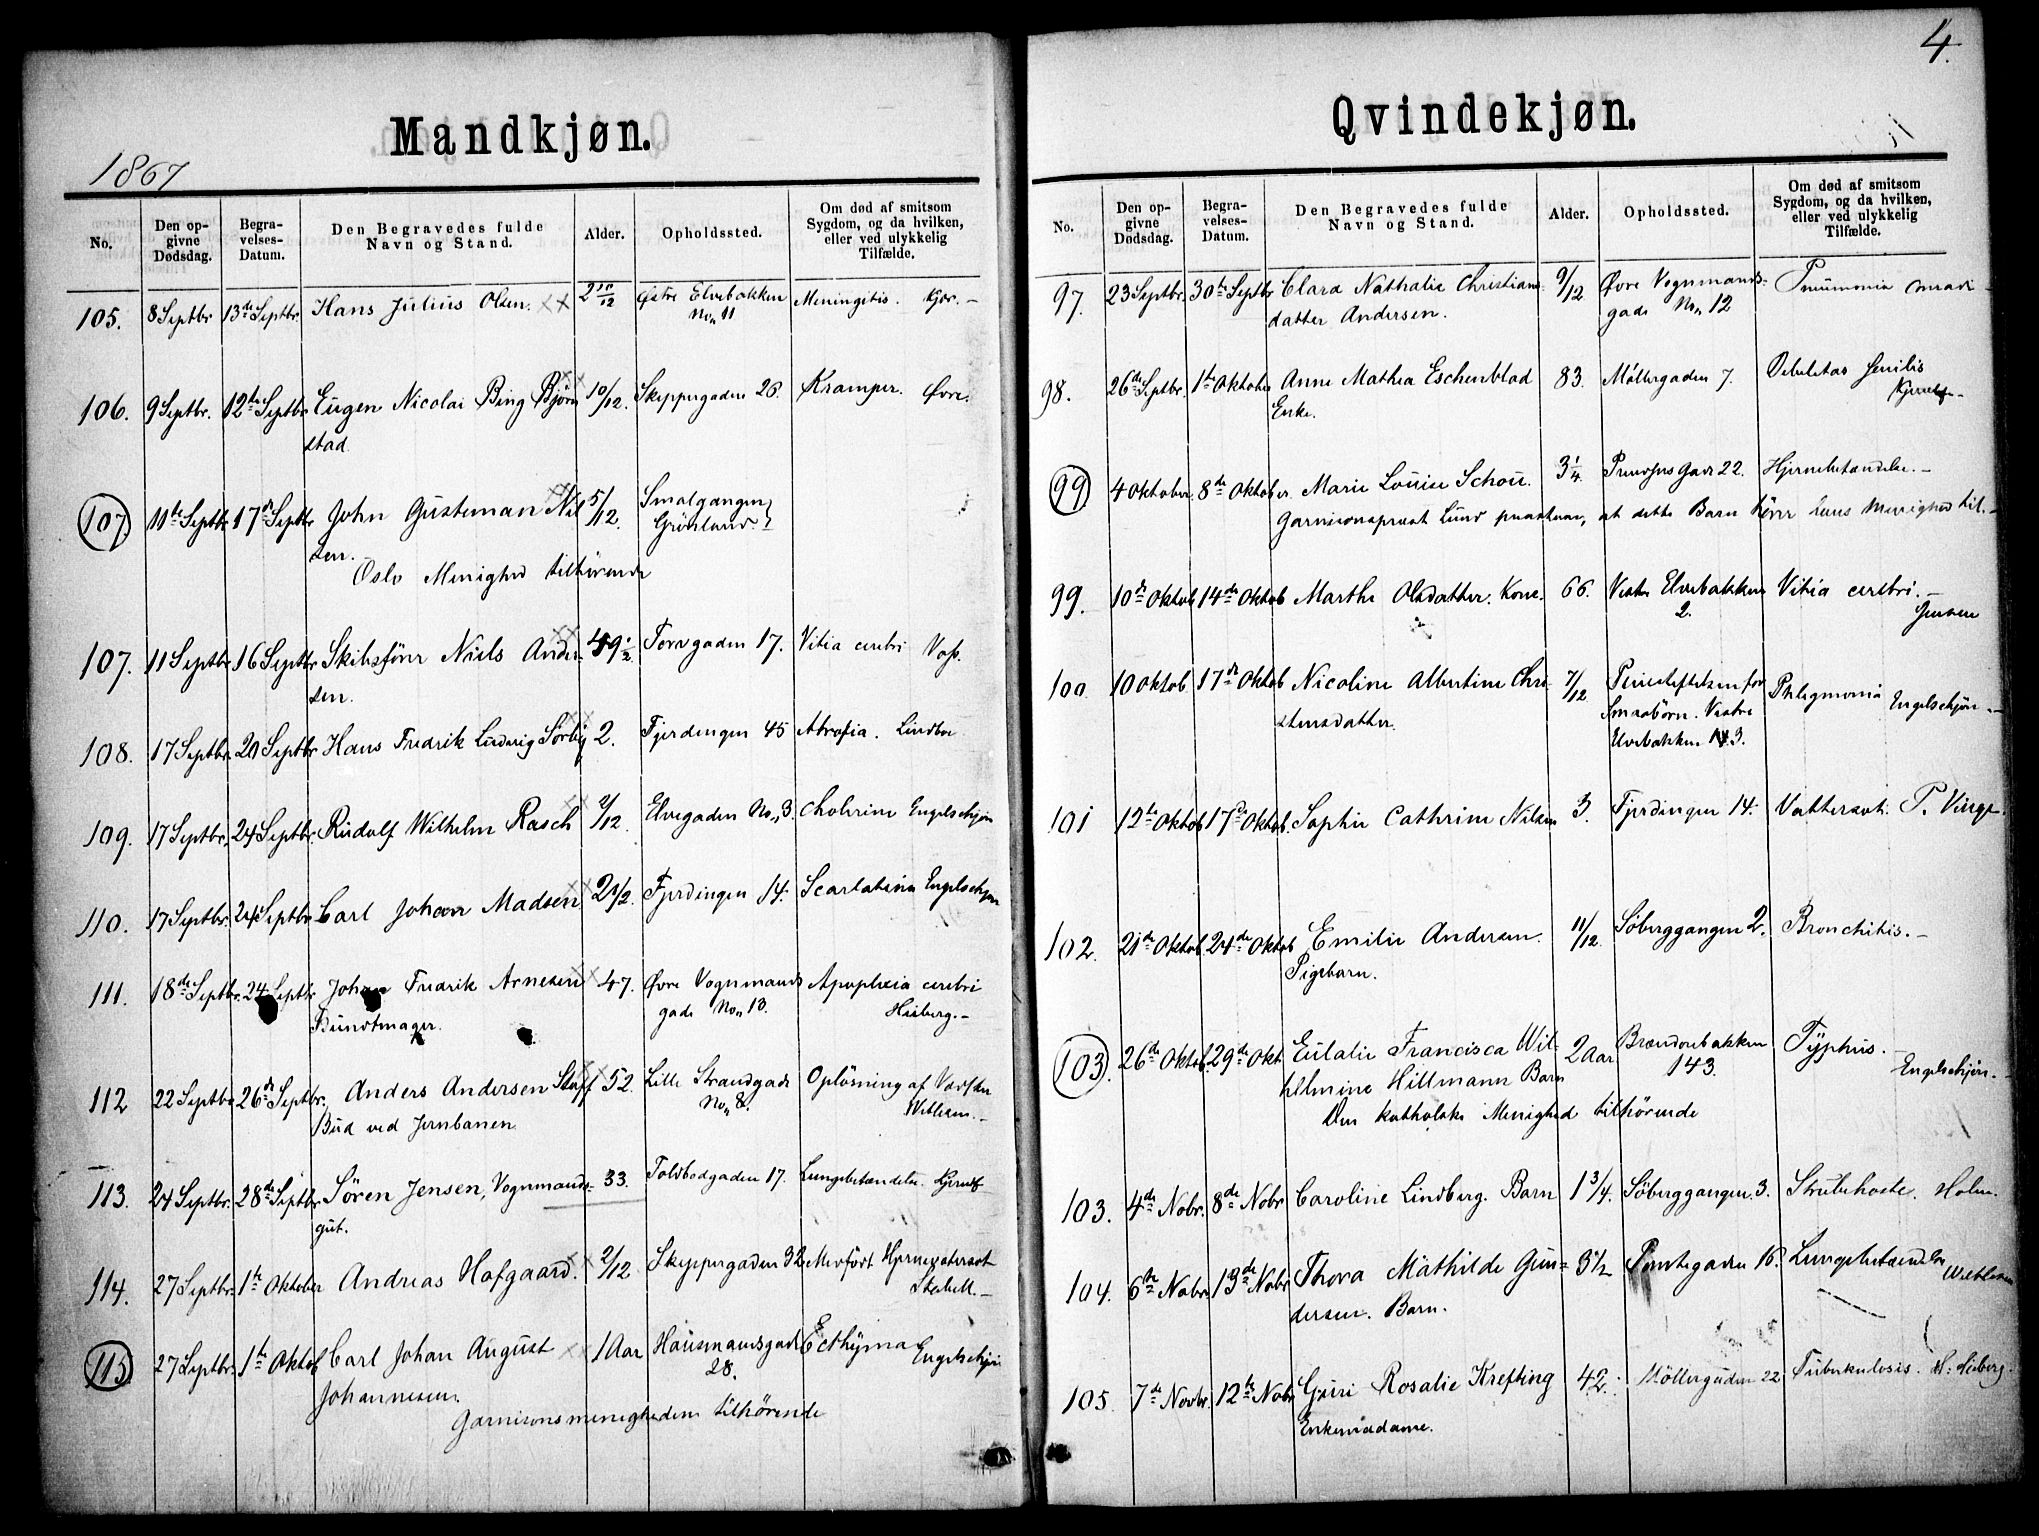 4.
Mandkjøn.
1867
No.
Den op-
givne
Dødsdag.
Begra-
velses-
Datum.
Den Begravedes fulde
Navn og Stand.
Alder.
Opholdssted.
Om død af smitsom
Sygdom, og da hvilken,
eller ved ulykkelig
Tilfælde.
105. 8 Septbr. 13de Septbr. Hans Julius Olsen. 2 10/12 Østre Elvebakken Meningitis. Kjær.
No. 11
106. 9 Septbr. 12te Septbr. Eugen Nicolai Bing Bjørn 10/12. Skippergaden 26. Kramper. Øvre.
stad.
107. 11te Septbr 17de Septbr John Gusteman Nil 5/12. Smalgangen
sen. Grönland.
Oslo Menighed tilhörende
107. 11 Septbr 16 Septbr Skibsförer Niels Ander- 49 1/2. Torvgaden 17. Vitia cerebri Voss.
sen.
108. 17 Septbr. 20 Septbr Hans Fredrik Ludvig Sørby 2. Fjerdingen 45 Atrofia. Lindboe
109. 17 Septbr. 24 Septbr. Rudolf Wilhelm Rasch 2/12 Elvegaden No. 3. Cholerine Engelschjøn
110. 17 Septbr. 24 Septbr Carl Johan Madsen 2 1/2. Fjerdingen 14. Scarlatina Engelschjøn
111. 18de Septbr. 24 Septbr Johan Fredrik Arnesen 47. Øvre Vognmands Apoplexia cerebri
Bundtmager. gade No. 13. Heiberg.
112 22 Septbr 26de Septbr. Anders Andersen Staff 52. Lille Strandgade Oplösning af Vædsker
Bud ved Jernbanen No. 8. Willesen.
113. 24 Septbr. 28de Septbr Sören Jensen, Vognmands- 33. Toldbodgaden 17. Lungebetændelse Kjerulf
gut.
114. 27 Septbr. 1te Oktober Andreas Hofgaard. 2/12 Skippergaden 32 Medfödt Hjernevatersot
Stabell.
115 27 Septbr. 1te Oktob Carl Johan August 1 Aar Hausmandsgade Ecthyma Engelschjøn
Johannesen. 28.
Garnisonsmenigheden tilhörende
Qvindekjøn.
No.
Den op-
givne
Dødsdag.
Begra-
velses-
Datum.
Den Begravedes fulde
Navn og Stand.
Alder.
Opholdssted.
Om død af smitsom
Sygdom, og da hvilken,
eller ved ulykkelig
Tilfælde.
97. 23 Septbr. 30te Septbr Clara Nathalie Christians- 9/12 Øvre Vognmands- Pneumonia Conradi
datter Andersen. gade No. 12
98. 26de Septbr. 1te Oktober Anne Mathea Eschenblad 83. Möllergaden 7. Debilitas senilis
Enke. Kjerulf
99 4 Oktober 8de Oktober. Marie Louise Schou. 3 1/4. Prindsens Gade 22. Hjernebetændelse.
Garnisonsprest Lund paastaar, at dette Barn hörer hans Menighed til.
99. 10de Oktob 14de Oktob Marthe Olsdatter. Kone. 66. Vestre Elvebakken Vitia cerebri.
2. Jensen
100. 10 Oktob. 17de Oktob Nicoline Albertine Chri 7/12 Pleiestiftelsen for Phlegmonia Engelschjøn
stensdatter. Smaabörn. Vestre
Elvebakken 143.
101 12te Oktob 17de Oktob. Sophie Cathrine Nilsen 3. Fjerdingen 14. Vattersot. P. Vinge.
102. 21de Oktob. 24de Oktob Emilie Andersen. 11/12. Söberggangen 2. Bronchitis.
Pigebarn.
103. 26de Oktob. 29de Okt. Eulalie Francisca Wil- 2 Aar Brændoebakken Typhus.
helmine Hillmann Barn 143. Engelschjøn.
Den katholske Menighed tilhörende
103. 4de Nobr. 8de Nobr Caroline Lindberg. Barn 1 3/4. Söberggangen 3. Strubehoste. Holm.
104. 6te Nobr 13de Nobr Thora Mathilde Gun- 3 1/2 Tomtegaden 16. Lungebetændelse
dersen. Barn. Willesen
105. 7de Novbr. 12te Nobr Guri Rosalie Krefting 42. Möllergaden 22 Tuberkulosis. H: Heiberg.
Enkemadame.